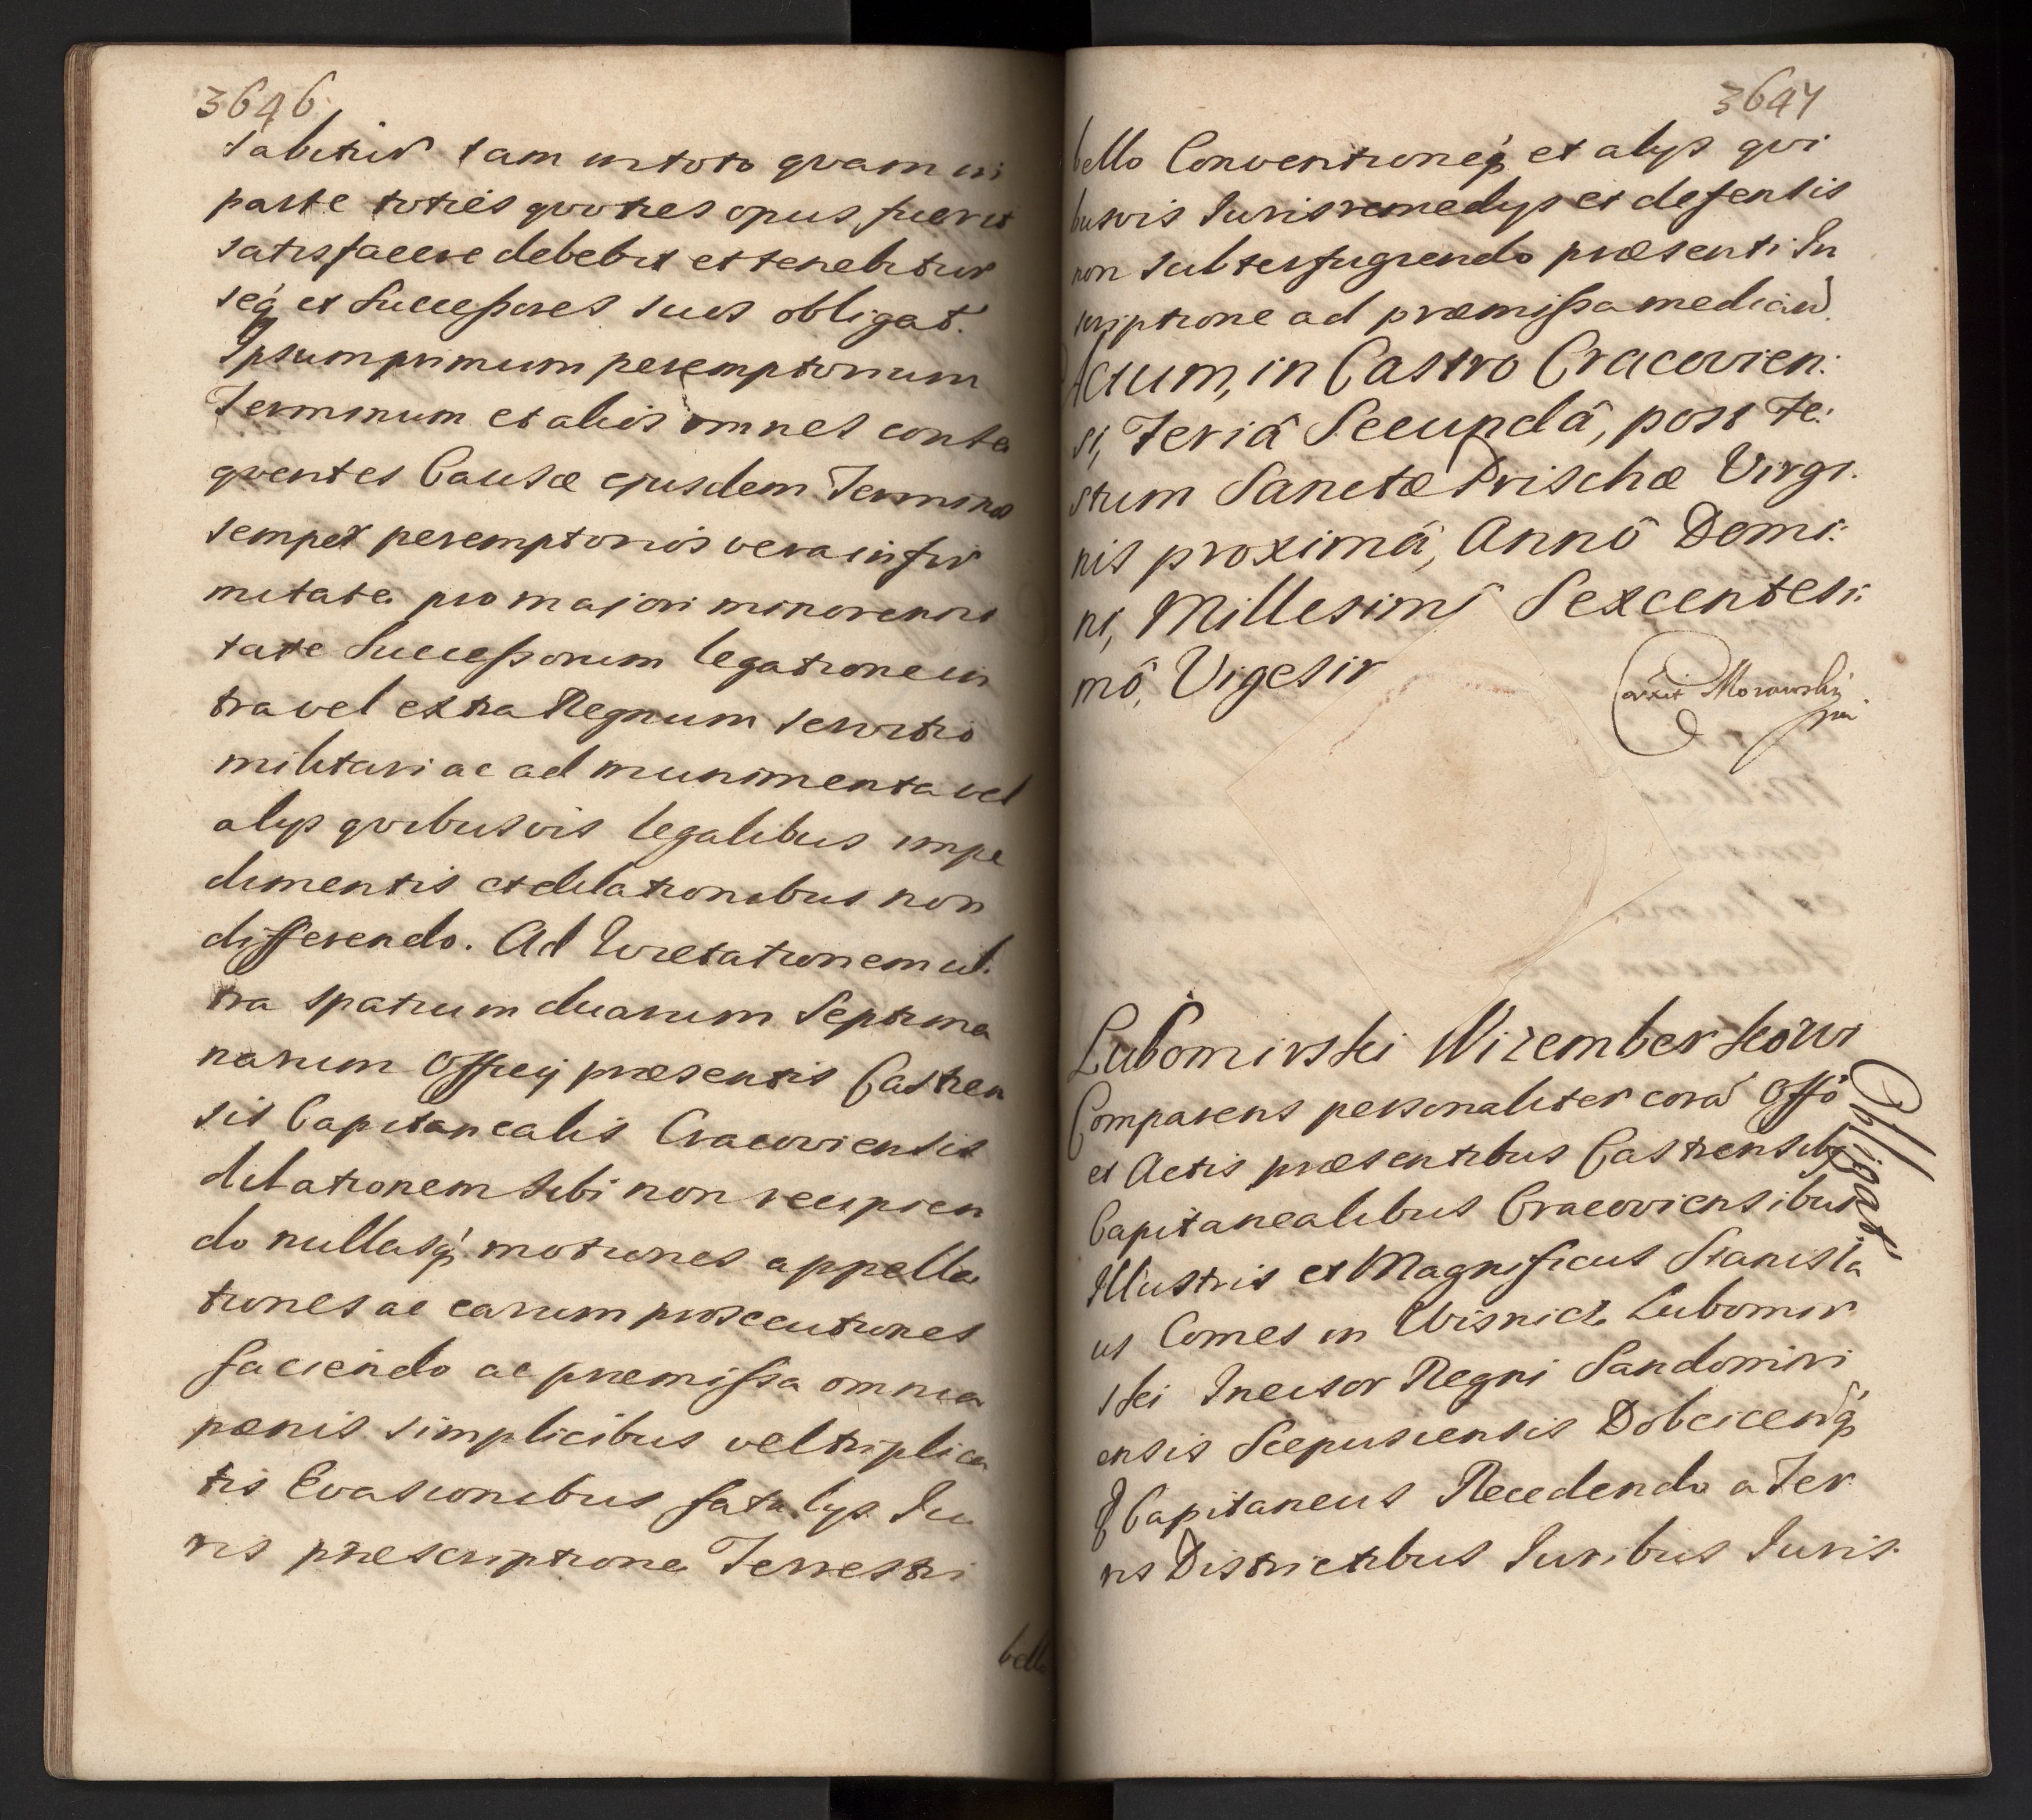 3646
tabitur tam in toto quam in
parte toties quoties opus fuerit
satisfacere debebit et tenebitur
seq́ et Successores suos obligat.
Ipsum primum peremptorium
Terminum et alios omnes conse
quentes Causæ ejusdem Terminos
semper peremptorios vera infir
mitate pro majori minorenni
tate Successorum legatione in
tra vel extra Regnum servitio
militari ac ad munimenta vel
alys quibusvis legalibus impe
dimentis et dilationibus non
differendo. Ad Luitationem ul
tra spatium duarum Septima
narum Officij præsentis Castren
sis Capitanealis Cracoviensis
dilationem sibi non recipien
do nullasq́ motiones appella
tiones ac earum prosecutiones
faciendo ac præmissa omnia
pœnis simplicibus vel triplica
tis Evasionibus fatalys Iu
ris præscriptione Terrestri
bello
3647
bello Conventioneq́ et alys qui
busvis Iuris remedys et defensis
non subterfugiendo præsenti In
scriptione ad præmissa median̄
Actum, in Castro Cracovien:
si, Feriâ Secundâ, post Fe:
stum Sanctæ Prischæ Virgi.
nis proximâ, Annô Domi:
ni, Millesimô Sexcentesi:
mô, Vigesi
Obligat
Lubomirski Wizemberkowi
Comparens personaliter corā Offō
et Actis præsentibus Castrensibq́
Capitanealibus Cracoviensibus
Illustris et Magnificus Stanisla
us Comes in Wisnicz Lubomir
ski Incisor Regni Sandomiri
ensis Scepusiensis Dobcicen̄q́
Capitaneus Recedendo a Ter
ris Districtibus Iuribus Iuris.